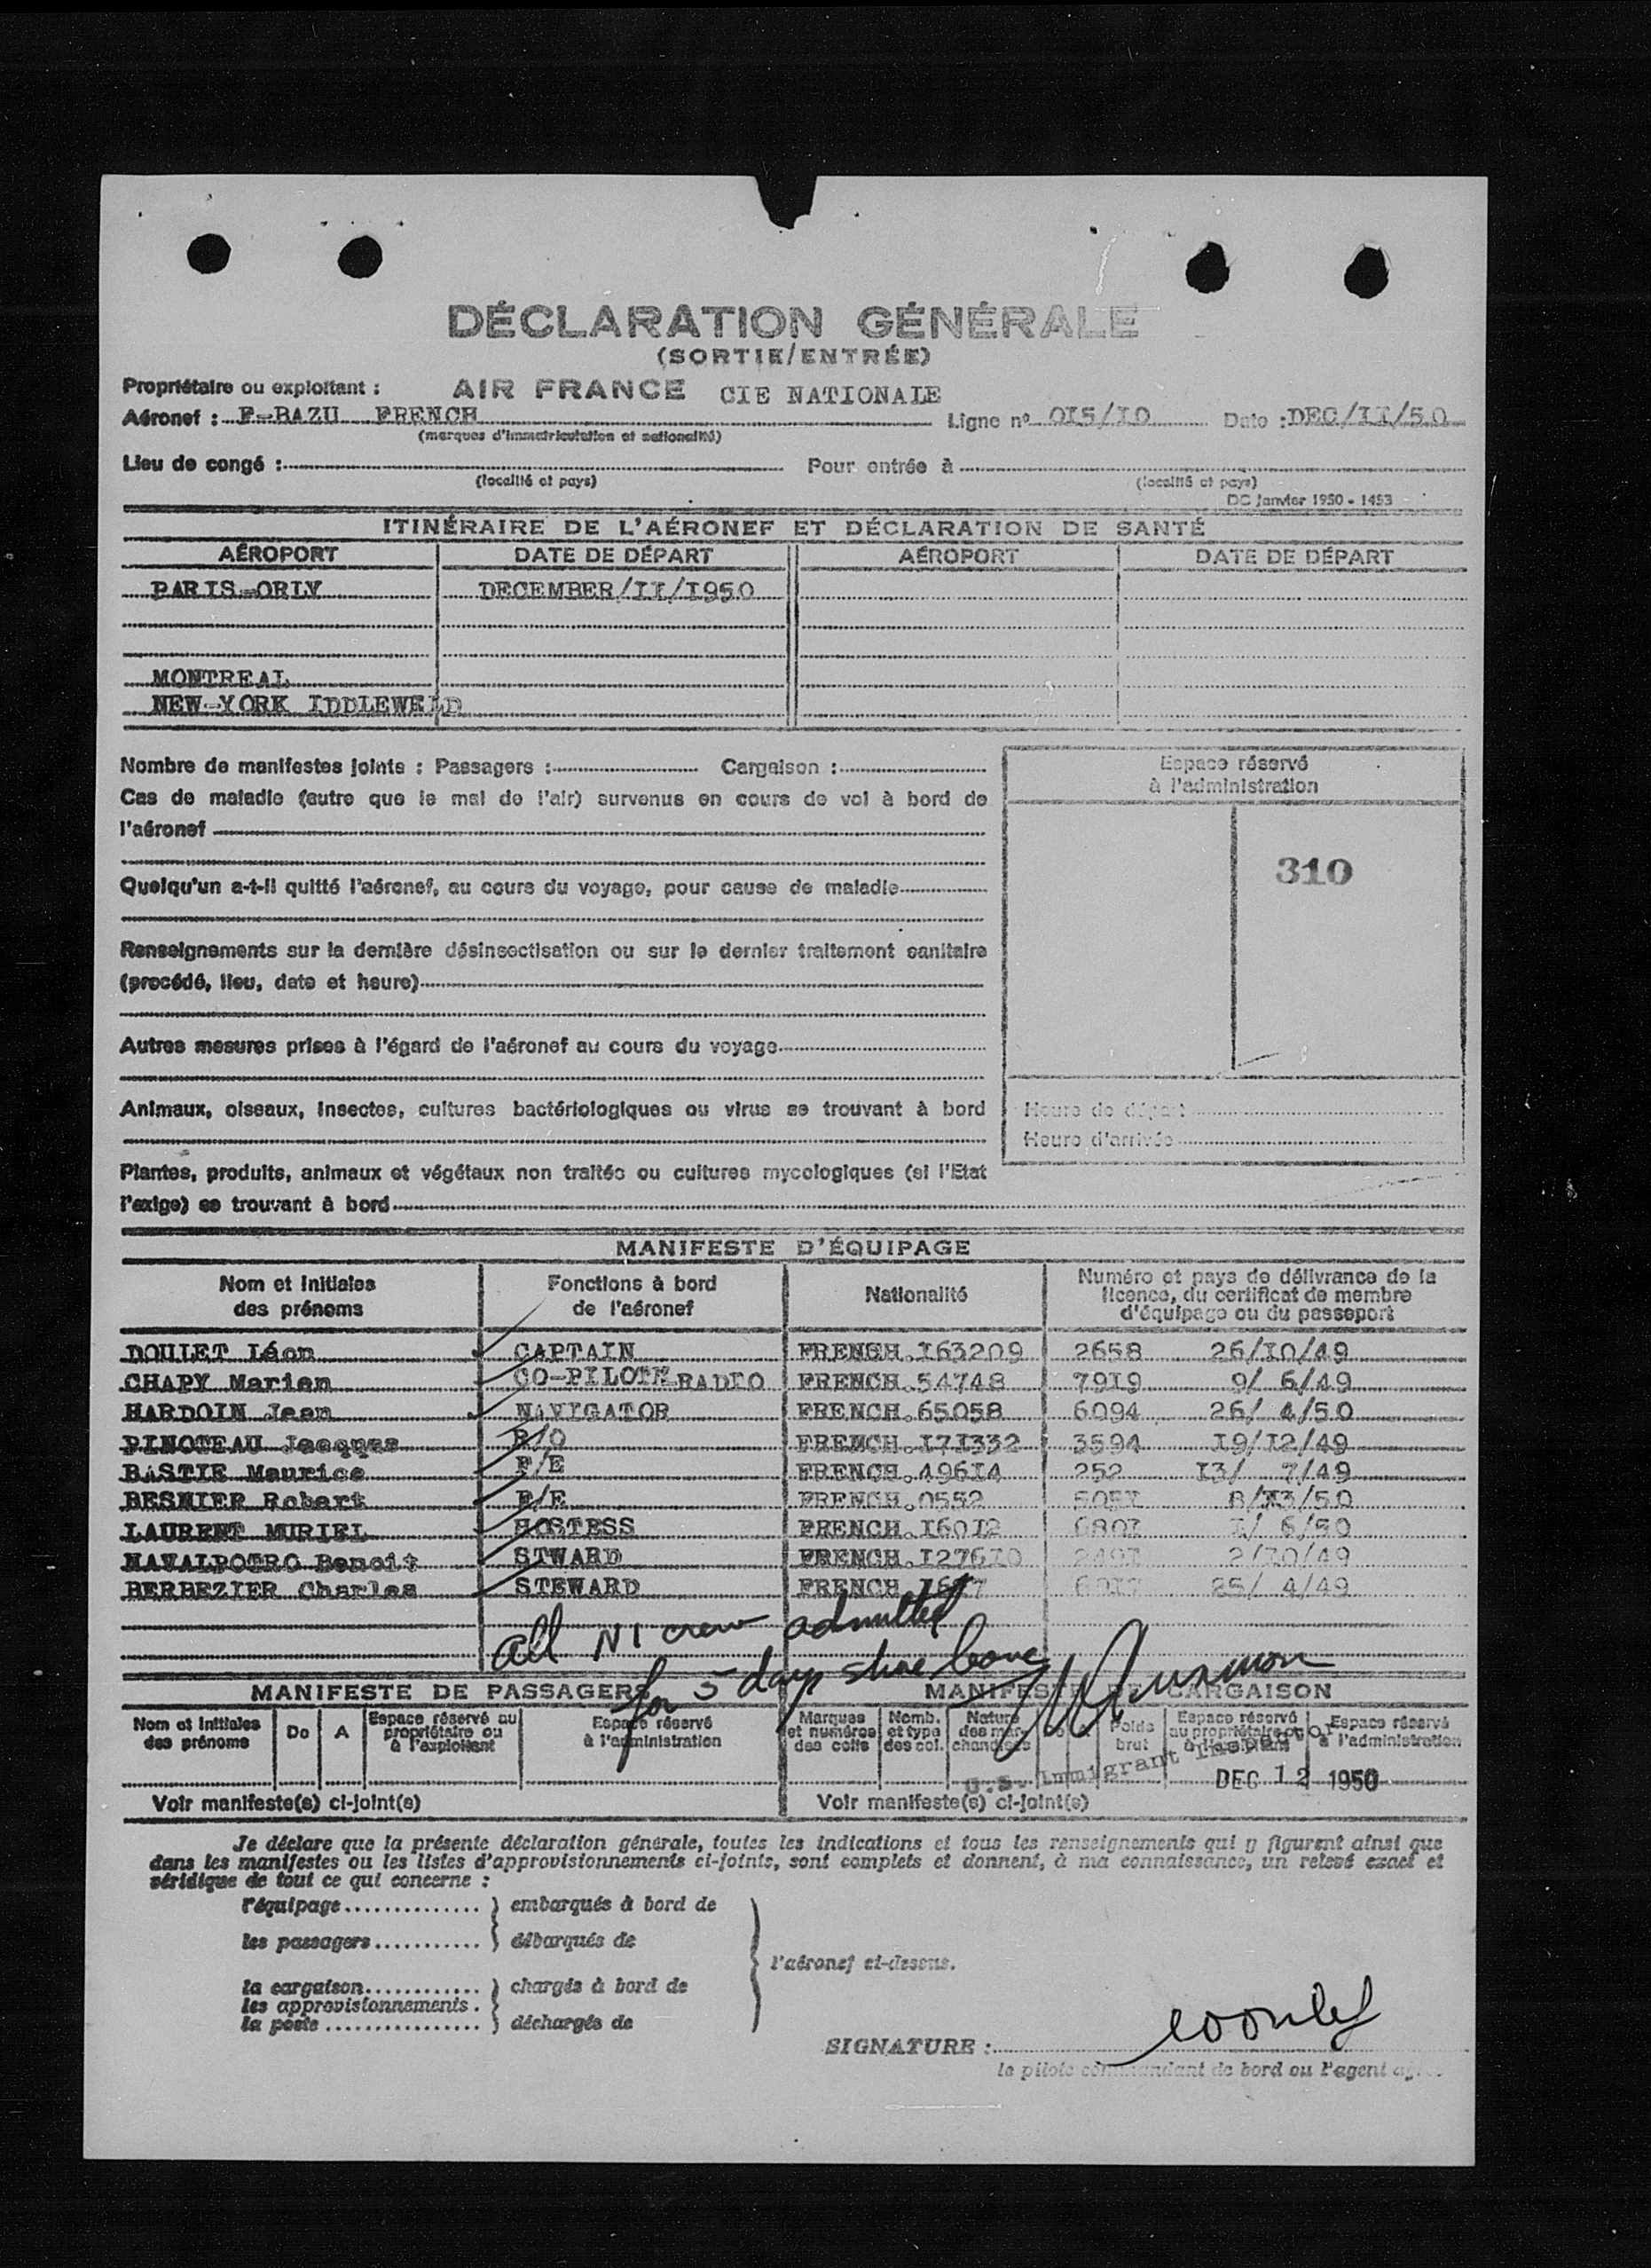 DÉCLARATION GÉNÉRALE
(SORTIE/ENTRÉE)
Propriétaire ou exploitant : AIR FRANCE CIE NATIONALE
Aéronef : F-BAZU FRENCH Ligne nº 0I5/I0 Date : DEC/II/50
(marques d'immatriculation et nationalité)
Lieu de congé : Pour entrée à
(localité et pays) (localité et pays)
DC Janvier 1950 - 1453
ITINÉRAIRE DE L'AÉRONEF ET DÉCLARATION DE SANTÉ
AÉROPORT DATE DE DÉPART AÉROPORT DATE DE DÉPART
PARIS-ORLY DECEMBER/II/I950
MONTREAL
NEW-YORK IDDLEWELD
Nombre de manifestes joints : Passagers : Cargaison :
Espace réservé
à l'administration
Cas de maladie (autre que le mal de l'air) survenus en cours de vol à bord de
l'aéronef
310
Quelqu'un a-t-il quitté l'aéronef, au cours du voyage, pour cause de maladie
Renseignements sur la dernière désinsectisation ou sur le dernier traitement sanitaire
(procédé, lieu, date et heure)
Autres mesures prises à l'égard de l'aéronef au cours du voyage
Animaux, oiseaux, insectes, cultures bactériologiques ou virus se trouvant à bord
Heure de départ
Heure d'arrivée
Plantes, produits, animaux et végétaux non traités ou cultures mycologiques (si l'Etat
l'exige) se trouvant à bord
MANIFESTE D'ÉQUIPAGE
Nom et initiales des prénoms Fonctions à bord de l'aéronef Nationalité Numéro et pays de délivrance de la licence, du certificat de membre d'équipage ou du passeport
DOULET Léon CAPTAIN FRENCH.I63209 2658 26/I0/49
CHAPY Marien CO-PILOTE RADIO FRENCH.54748 79I9 9/ 6/49
HARDOIN Jean NAVIGATOR FRENCH.65058 6094 26/ 4/50
PINOTEAU Jacques R/O FRENCH.I7I332 3594 I9/I2/49
BASTIE Maurice F/E FRENCH.496I4 252 I3/ 7/49
BESNIER Robert F/E FRENCH.0552
LAURENT MURIEL HOSTESS FRENCH.I60I2 680I I/ 6/50
NAVALPOTRO Benoit STWARD FRENCH.I276I0 249I 2/I0/49
BERBEZIER Charles STEWARD FRENCH 25/ 4/49
all NI crew admitted
for 5 days shore leave
MANIFESTE DE PASSAGERS MANIFESTE DE CARGAISON
Nom et initiales des prénoms De A Espace réservé au propriétaire ou à l'exploitant Espace réservé à l'administration Marques et numéros des colis Nomb. et type des col. Nature des marchandises Poids brut Espace réservé au propriétaire ou à l'exploitant Espace réservé à l'administration
U.S. Immigrant Inspector
DEC 12 1950
Voir manifeste(s) ci-joint(s) Voir manifeste(s) ci-joint(s)
Je déclare que la présente déclaration générale, toutes les indications et tous les renseignements qui y figurent ainsi que
dans les manifestes ou les listes d'approvisionnements ci-joints, sont complets et donnent, à ma connaissance, un relevé exact et
véridique de tout ce qui concerne :
l'équipage } embarqués à bord de
les passagers } débarqués de
l'aéronef ci-dessus.
la cargaison } chargés à bord de
les approvisionnements
la poste } déchargés de
SIGNATURE :
le pilote commandant de bord ou l'agent